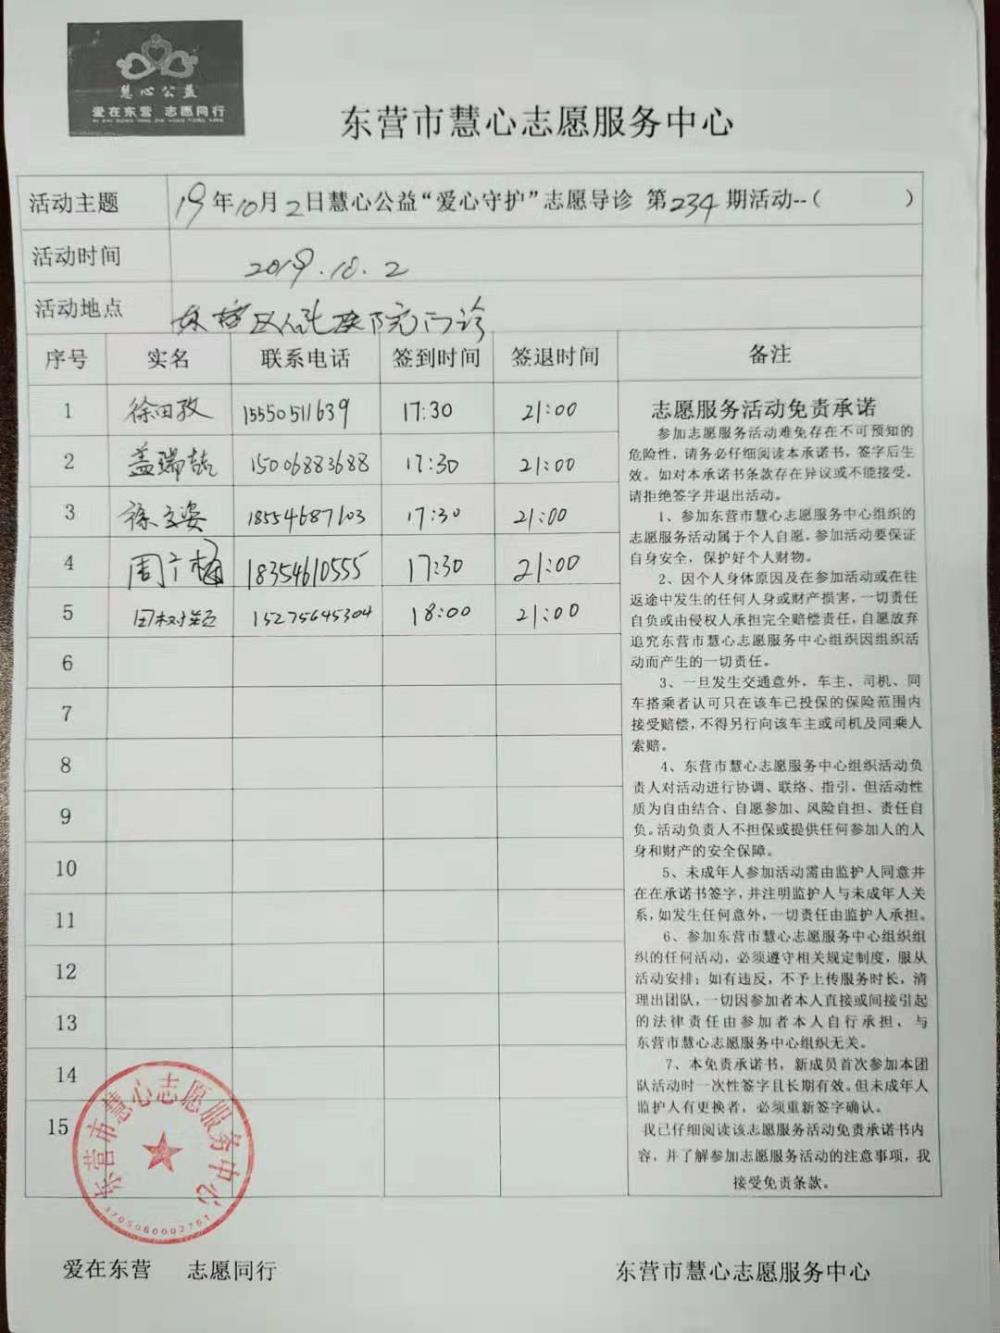 慧心公益
爱在东营 志愿同行
东营市慧心志愿服务中心
活动主题 19年10月2日慧心公益“爱心守护”志愿导诊 第234期活动--( )
活动时间 2019.10.2
活动地点 东营区人民医院门诊
序号 实名 联系电话 签到时间 签退时间 备注
1 徐田孜 15550511639 17:30 21:00
2 盖瑞 15006883688 17:30 21:00
3 18554687103 17:30 21:00
4 周广梅 18354610555 17:30 21:00
5 田树 15275645304 18:00 21:00
6
7
8
9
10
11
12
13
14
15
志愿服务活动免责承诺
参加志愿服务活动难免存在不可预知的
危险性，请务必仔细阅读本承诺书，签字后生
效。如对本承诺书条款存在异议或不能接受，
请拒绝签字并退出活动。
1、参加东营市慧心志愿服务中心组织的
志愿服务活动属于个人自愿，参加活动要保证
自身安全，保护好个人财物。
2、因个人身体原因及在参加活动或在往
返途中发生的任何人身或财产损害，一切责任
自负或由侵权人承担完全赔偿责任，自愿放弃
追究东营市慧心志愿服务中心组织因组织活
动而产生的一切责任。
3、一旦发生交通意外，车主、司机、同
车搭乘者认可只在该车已投保的保险范围内
接受赔偿，不得另行向该车主或司机及同乘人
索赔。
4、东营市慧心志愿服务中心组织活动负
责人对活动进行协调、联络、指引，但活动性
质为自由结合、自愿参加、风险自担、责任自
负。活动负责人不担保或提供任何参加人的人
身和财产的安全保障。
5、未成年人参加活动需由监护人同意并
在在承诺书签字，并注明监护人与未成年人关
系，如发生任何意外，一切责任由监护人承担。
6、参加东营市慧心志愿服务中心组织组
织的任何活动，必须遵守相关规定制度，服从
活动安排；如有违反，不予上传服务时长，清
理出团队，一切因参加者本人直接或间接引起
的法律责任由参加者本人自行承担，与
东营市慧心志愿服务中心组织无关。
7、本免责承诺书，新成员首次参加本团
队活动时一次性签字且长期有效。但未成年人
监护人有更换者，必须重新签字确认。
我已仔细阅读该志愿服务活动免责承诺书内
容，并了解参加志愿服务活动的注意事项，我
接受免责条款。
东营市慧心志愿服务中心
3705060002761
爱在东营 志愿同行 东营市慧心志愿服务中心